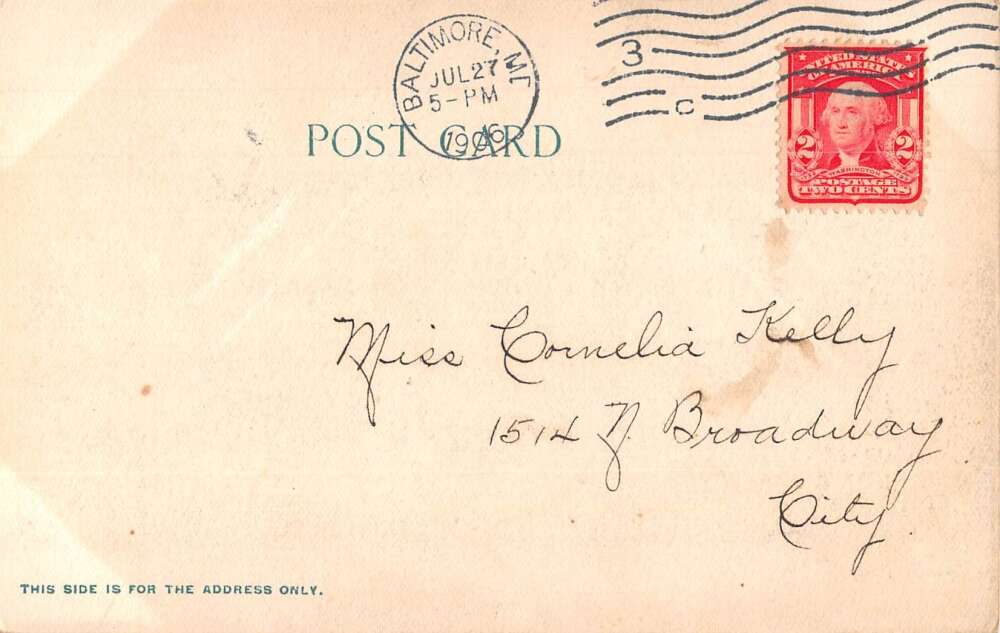 BALTIMORE, MD
JUL 27
5-PM
1906
3
C
UNITED STATES
OF AMERICA
2 2
WASHINGTON
POSTAGE
TWO CENTS
POST CARD
Miss Cornelia Kelly
1514 N. Broadway
City
THIS SIDE IS FOR THE ADDRESS ONLY.